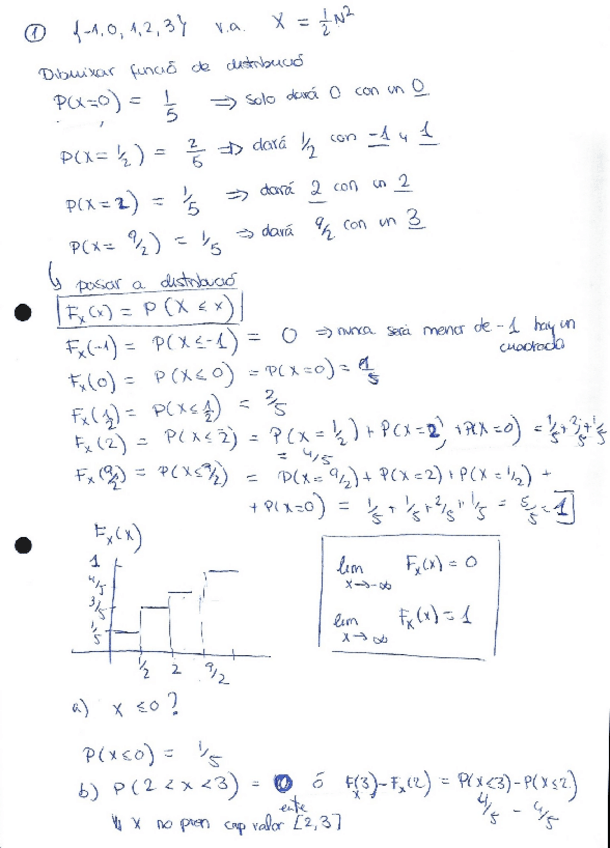 ① {-1, 0, 1, 2, 3} v.a. X = 1/2 N²
Dibuixar funció de distribució
P(X=0) = 1/5 ⇒ solo dará 0 con un 0
P(X=1/2) = 2/5 ⇒ dará 1/2 con -1 y 1
P(X=2) = 1/5 ⇒ dará 2 con un 2
P(X=9/2) = 1/5 ⇒ dará 9/2 con un 3
↳ pasar a distribució
Fx(x) = P(X ≤ x)
Fx(-1) = P(X≤-1) = 0 ⇒ nunca será menor de -1 hay un
cuadrado
Fx(0) = P(X≤0) = P(X=0) = 1/5
Fx(1/2) = P(X≤1/2) = 3/5
Fx(2) = P(X≤2) = P(X=1/2) + P(X=2) + P(X=0) = 1/5+2/5+1/5
= 4/5
Fx(9/2) = P(X≤9/2) = P(X=9/2) + P(X=2) + P(X=1/2) +
+ P(X=0) = 1/5 + 1/5 + 2/5 + 1/5 = 5/5 = 1
Fx(x)
1
4/5
3/5
1/5
1/2 2 9/2
lim x→-∞ Fx(x) = 0
lim x→∞ Fx(x) = 1
a) x ≤ 0?
P(x≤0) = 1/5
b) P(2 < x < 3) = 0 ó Fx(3) - Fx(2) = P(x<3) - P(x≤2)
4/5 - 4/5
x no pren cap valor entre [2,3]